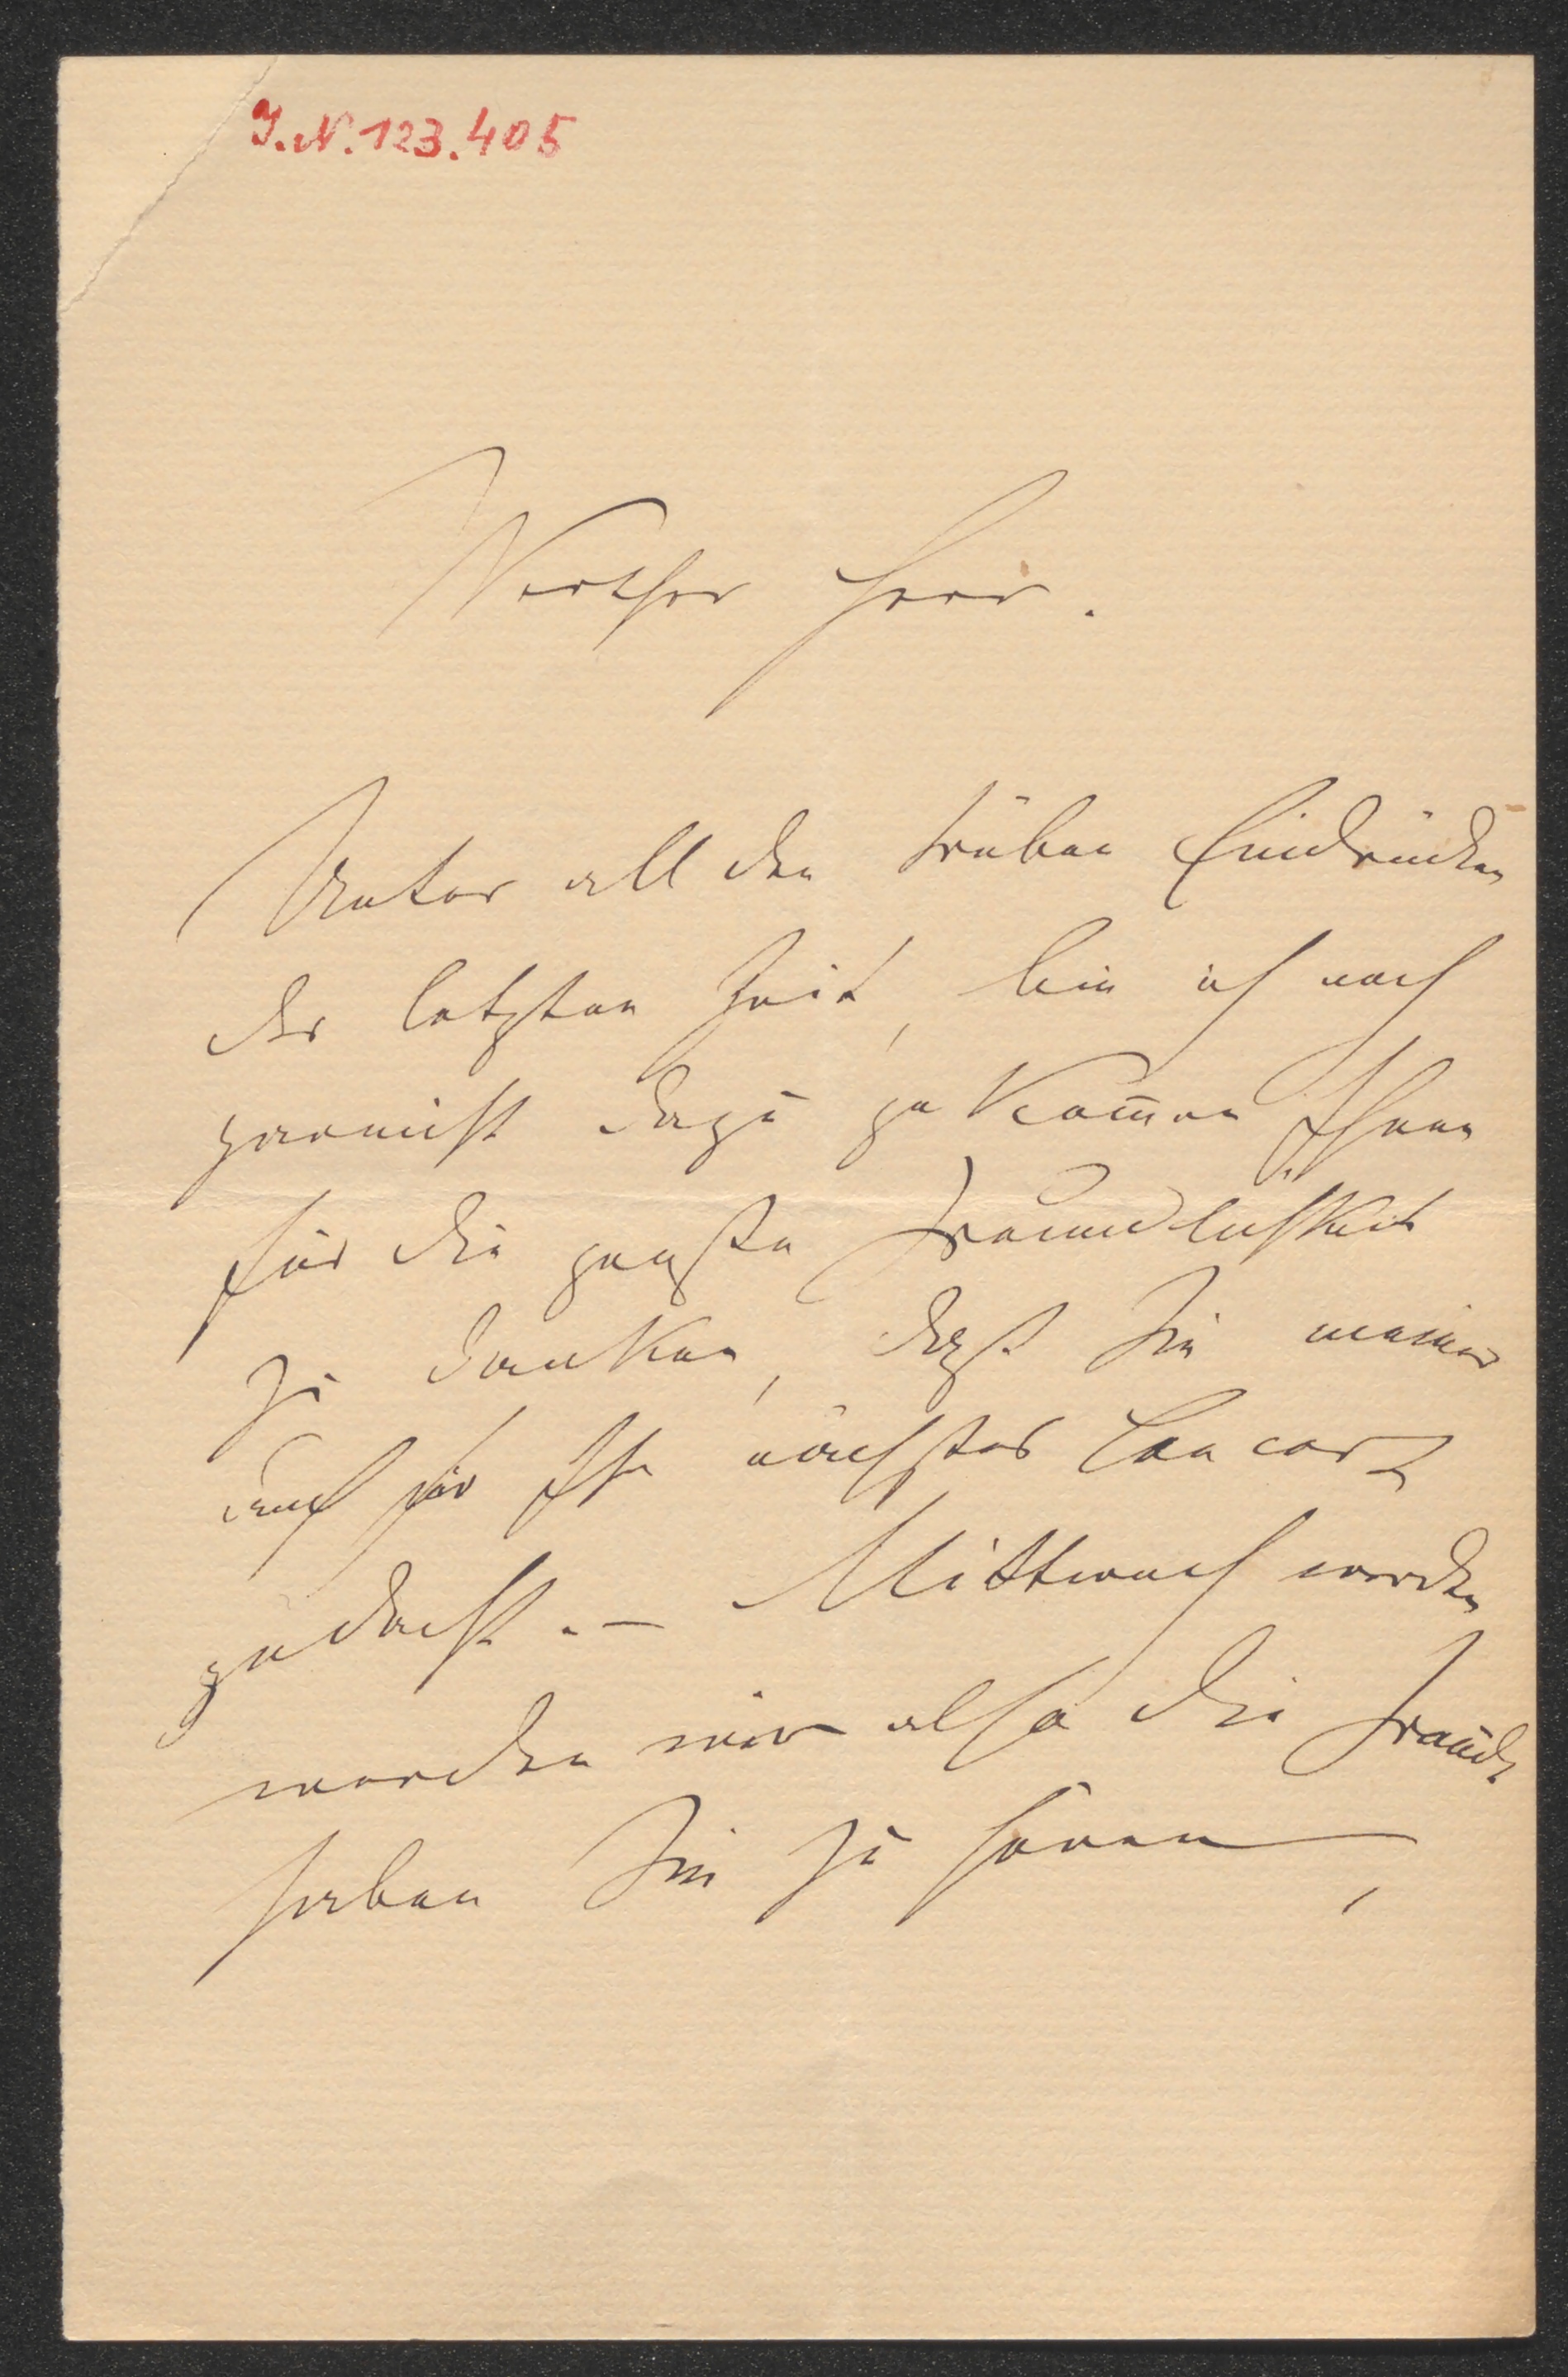 J.N. 123.405
Werther Herr.
Unter all den trüben Eindrücken
der letzten Zeit, bin ich noch
garnicht dazu gekom̄en Ihnen
für die große Freundlichkeit
zu danken, daß Sie meiner
auch für Ihr nächstes Concert
gedacht. – Mittwoch werden
werden wir also die Freude
haben Sie zu hören,